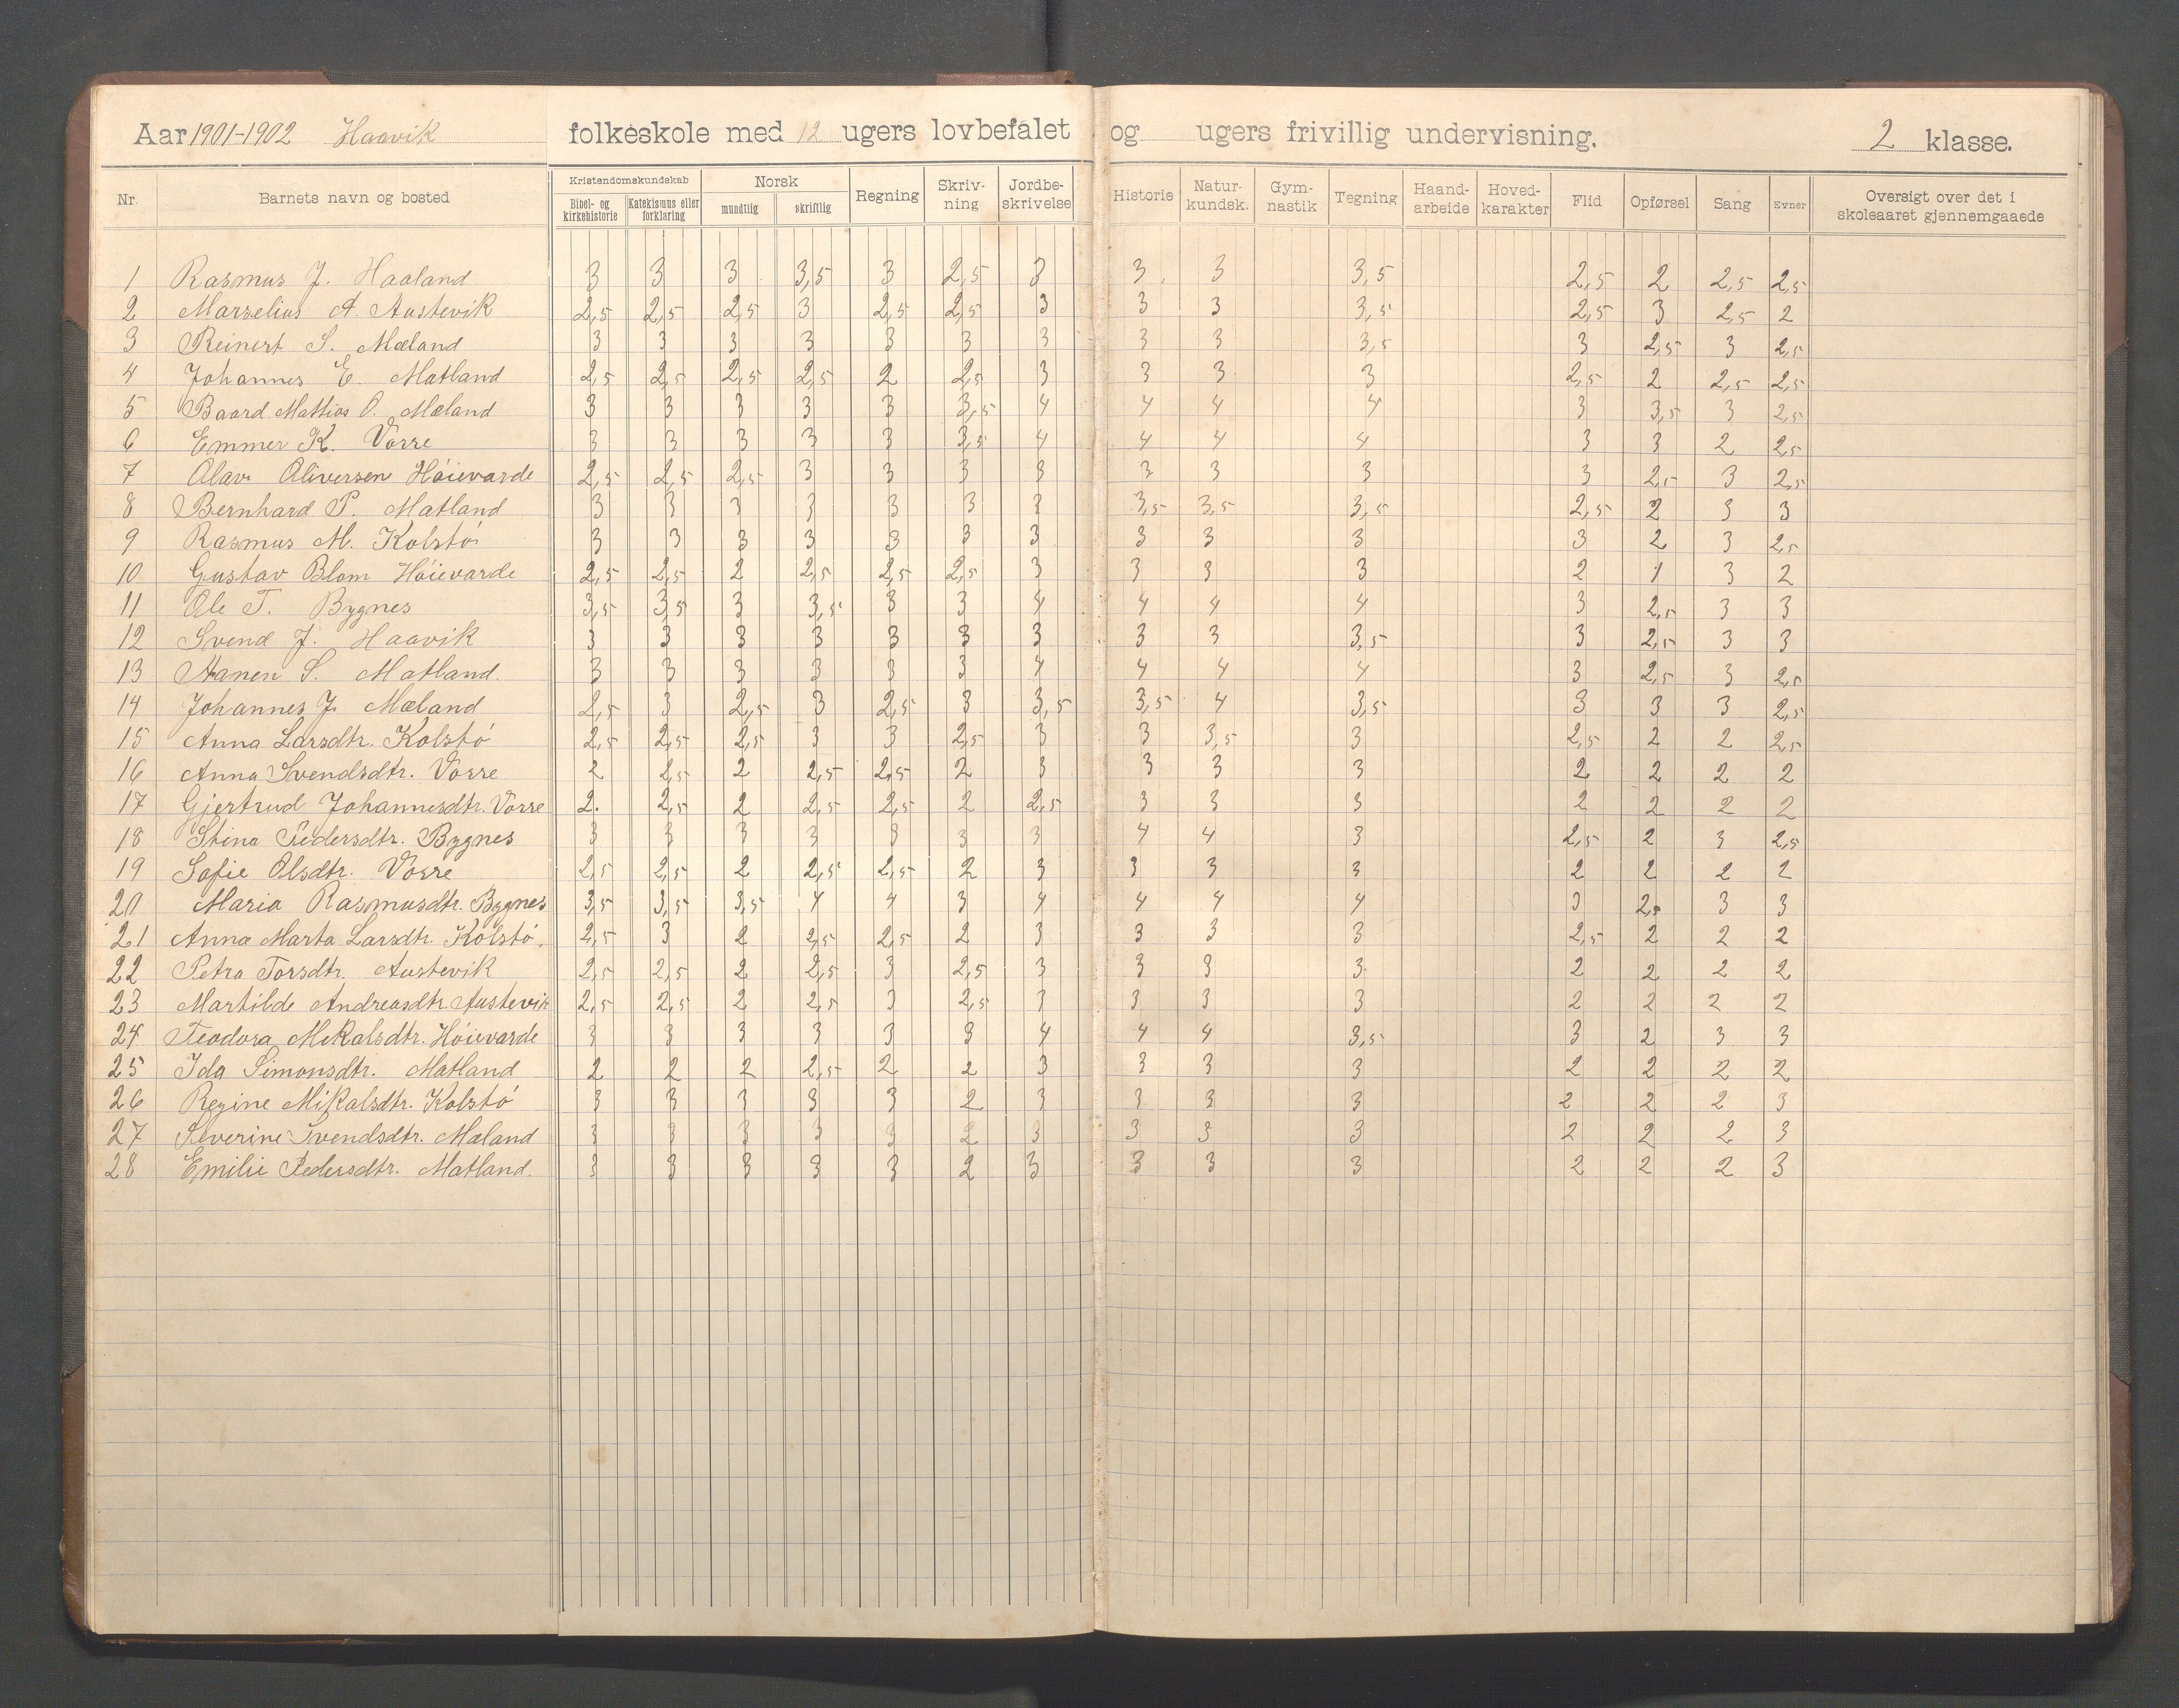 Aar 1901-1902 Haavik folkeskole med 12 ugers lovbefalet og ugers frivillig undervisning. 2 klasse.
Nr. Barnets navn og bosted Kristendomskundskab Bibel- og kirkehistorie Katekismus eller forklaring Norsk mundtlig skriftlig Regning Skriv-ning Jordbe-skrivelse Historie Natur-kundsk. Gym-nastik Tegning Haand-arbeide Hoved-karakter Flid Opførsel Sang Evner Oversigt over det i skoleaaret gjennemgaaede
1 Rasmus J. Haaland 3 3 3 3,5 3 2,5 3 3 3 3,5 2,5 2 2,5 2,5
2 Marselius A. Austevik 2,5 2,5 2,5 3 2,5 2,5 3 3 3 3,5 2,5 3 2,5 2
3 Reinert S. Mæland 3 3 3 3 3 3 3 3 3 3,5 3 2,5 3 2,5
4 Johannes E. Matland 2,5 2,5 2,5 2,5 2 2,5 3 3 3 3 2,5 2 2,5 2,5
5 Baard Mattias O. Mæland 3 3 3 3 3 3,5 4 4 4 4 3 3,5 3 2,5
6 Emmer K. Vorre 3 3 3 3 3 3,5 4 4 4 4 3 3 2 2,5
7 Olav Oliversen Höievarde 2,5 2,5 2,5 3 3 3 3 3 3 3 3 2,5 3 2,5
8 Bernhard P. Matland 3 3 3 3 3 3 3 3,5 3,5 3,5 2,5 2 3 3
9 Rasmus M. Kolstö 3 3 3 3 3 3 3 3 3 3 3 2 3 2,5
10 Gustav Blom Höievarde 2,5 2,5 2 2,5 2,5 2,5 3 3 3 3 2 1 3 2
11 Ole T. Bygnes 3,5 3,5 3 3,5 3 3 4 4 4 4 3 2,5 3 3
12 Svend J. Haavik 3 3 3 3 3 3 3 3 3 3,5 3 2,5 3 3
13 Aanen S. Matland. 3 3 3 3 3 3 4 4 4 4 3 2,5 3 2,5
14 Johannes J. Mæland 2,5 3 2,5 3 2,5 3 3,5 3,5 4 3,5 3 3 3 2,5
15 Anna Larsdtr. Kolstö 2,5 2,5 2,5 3 3 2,5 3 3 3,5 3 2,5 2 2 2,5
16 Anna Svendsdtr. Vorre 2 2,5 2 2,5 2,5 2 3 3 3 3 2 2 2 2
17 Gjertrud Johannesdtr. Vorre 2. 2,5 2 2,5 2,5 2 2,5 3 3 3 2 2 2 2
18 Stina Pedersdtr. Bygnes 3 3 3 3 3 3 3 4 4 3 2,5 2 3 2,5
19 Sofie Olsdtr. Vorre 2,5 2,5 2 2,5 2,5 2 3 3 3 3 2 2 2 2
20 Maria Rasmusdtr. Bygnes 3,5 3,5 3,5 4 4 3 4 4 4 4 3 2,5 3 3
21 Anna Marta Larsdtr. Kolstö. 2,5 3 2 2,5 2,5 2 3 3 3 3 2,5 2 2 2
22 Petra Torsdtr. Austevik 2,5 2,5 2 2,5 3 2,5 3 3 3 3 2 2 2 2
23 Martilde Andreasdtr. Austevik 2,5 2,5 2 2,5 3 2,5 3 3 3 3 2 2 2 2
24 Teodora Mikalsdtr. Höievarde 3 3 3 3 3 3 4 4 4 3,5 3 2 3 3
25 Ida Simonsdtr. Matland 2 2 2 2,5 2 2 3 3 3 3 2 2 2 2
26 Regine Mikalsdtr. Kolstö 3 3 3 3 3 2 3 3 3 3 2 2 2 3
27 Severine Svendsdtr. Mæland 3 3 3 3 3 2 3 3 3 3 2 2 2 3
28 Emilie Pedersdtr. Matland. 3 3 3 3 3 2 3 3 3 3 2 2 2 3